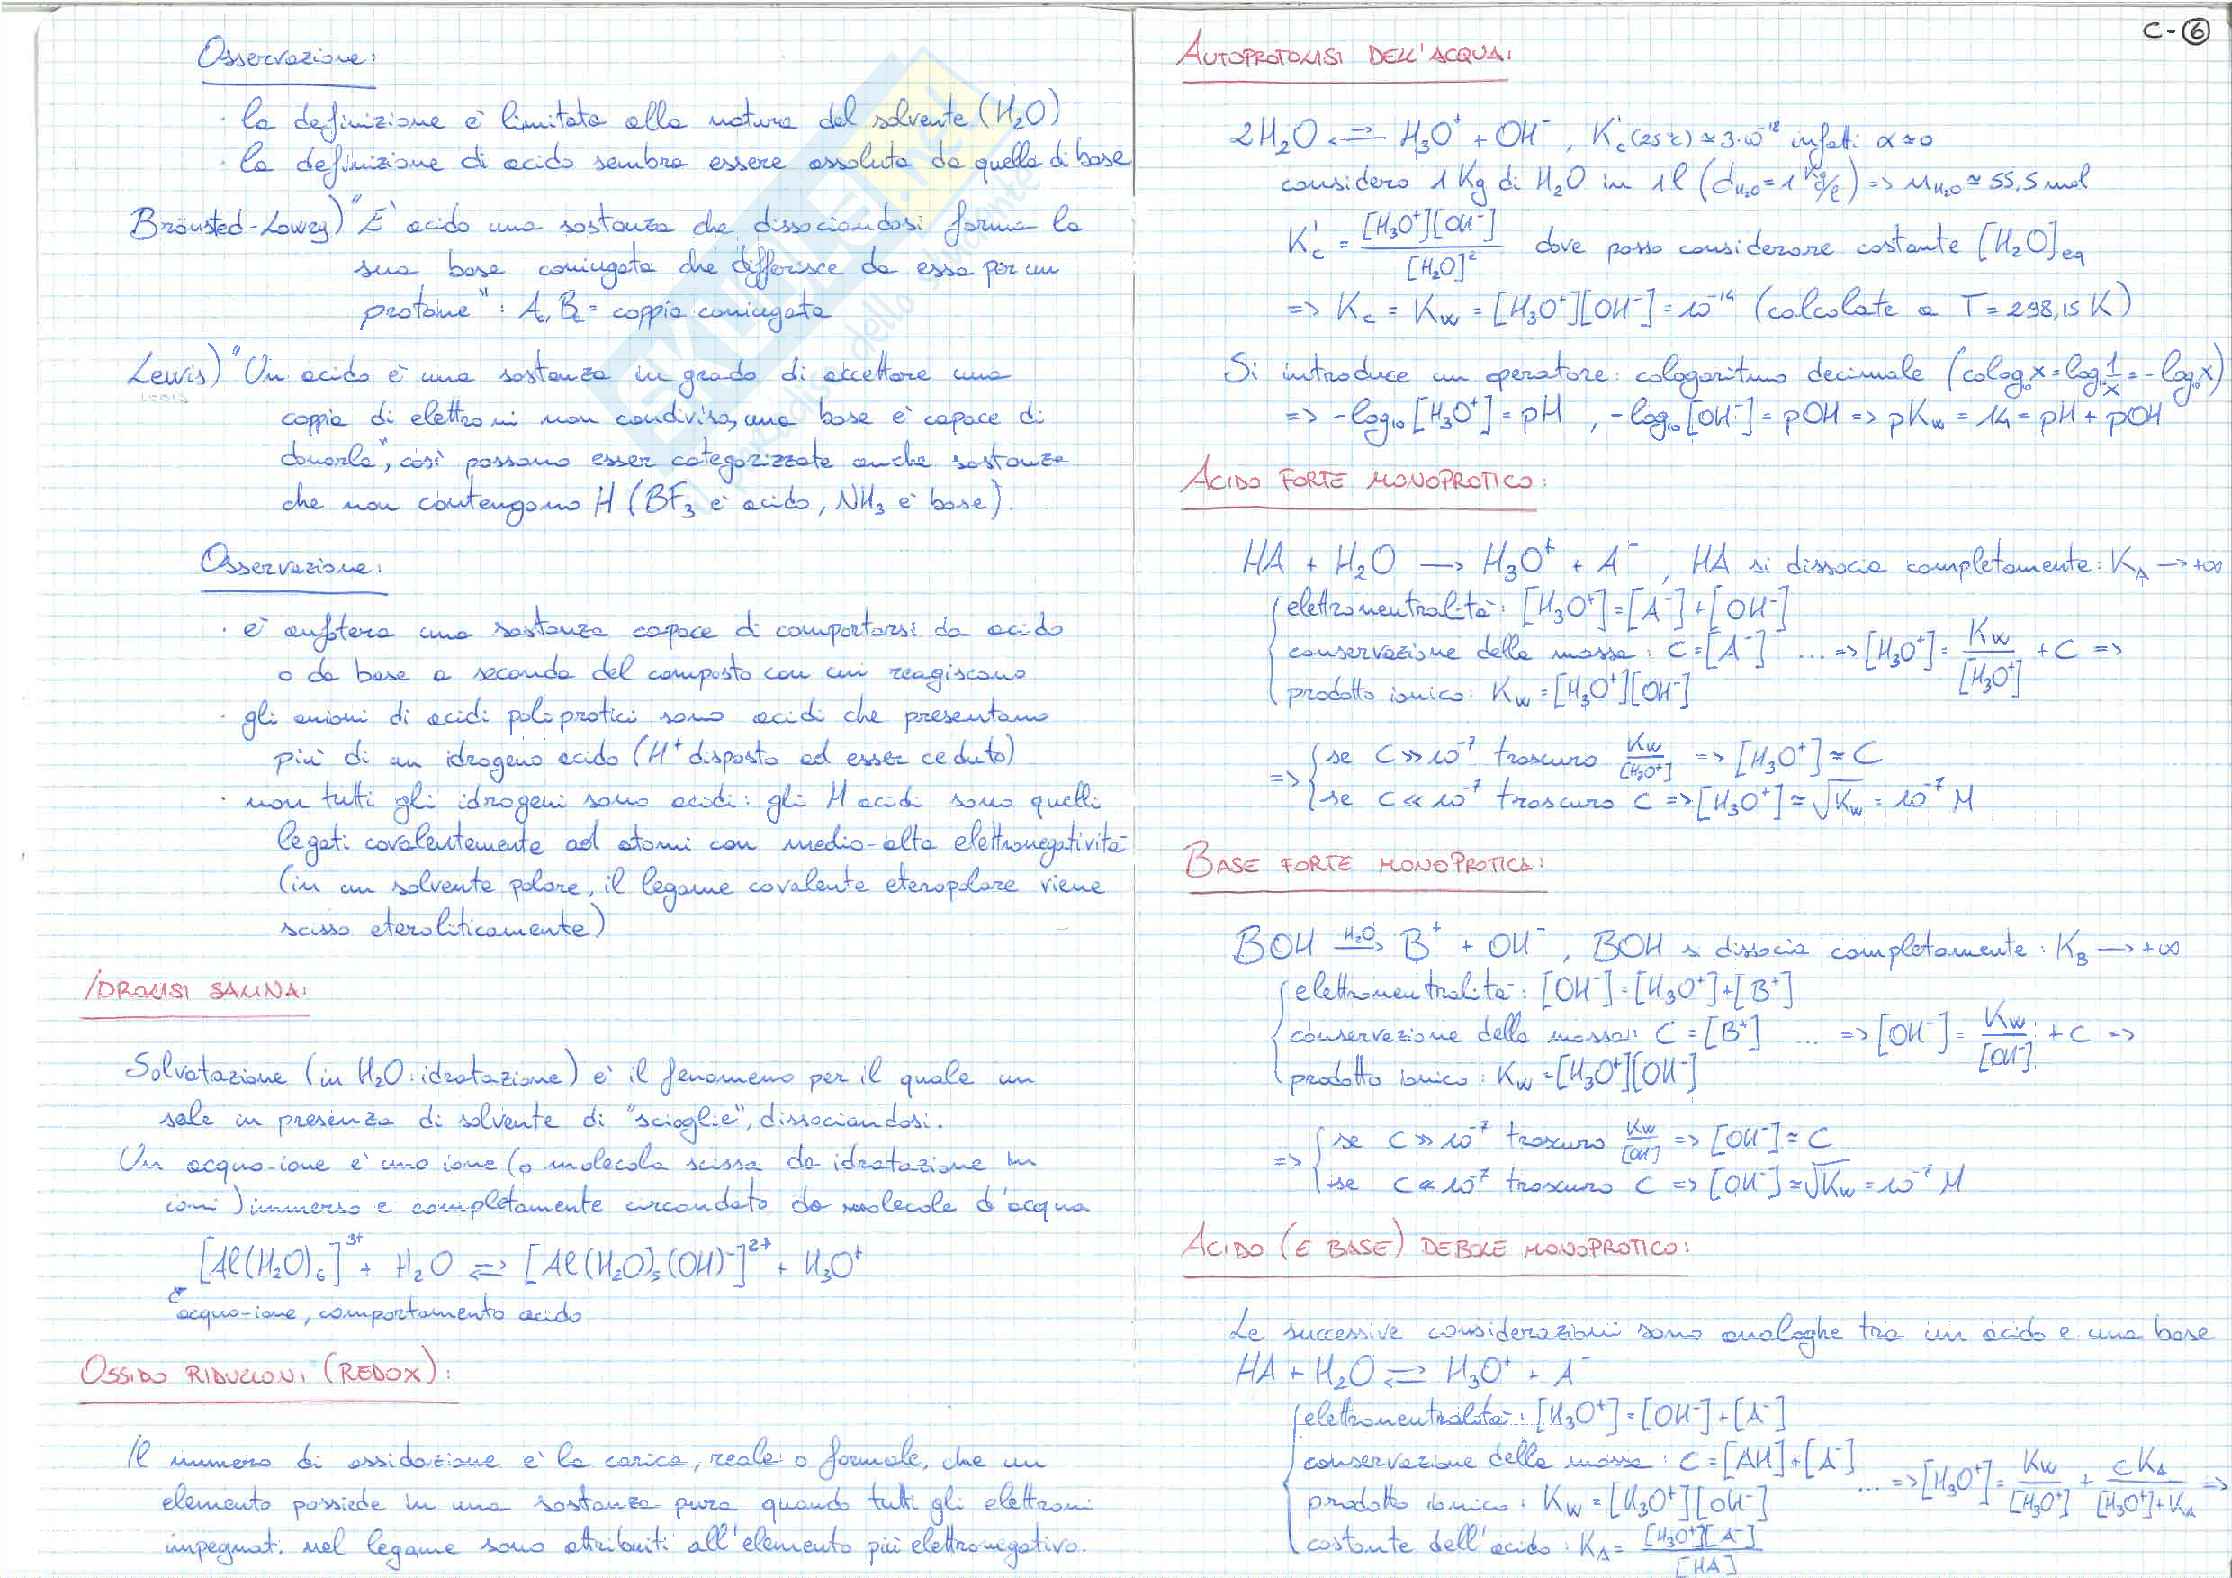 Osservazione:
· la definizione è limitata alla natura del solvente (H₂O)
· la definizione di acido sembra essere assoluta da quella di base
Brönsted-Lowry) "È acido una sostanza che dissociandosi forma la
sua base coniugata che differisce da essa per un
protone": Aₙ, Bₙ = coppia coniugata
Lewis) "Un acido è una sostanza in grado di accettare una
coppia di elettroni non condivisa, una base è capace di
donarla", così possono esser categorizzate anche sostanze
che non contengono H (BF₃ è acido, NH₃ è base).
Osservazione:
· è anfotera una sostanza capace di comportarsi da acido
o da base a seconda del composto con cui reagiscono
· gli anioni di acidi poliprotici sono acidi che presentano
più di un idrogeno acido (H⁺ disposto ad esser ceduto)
· non tutti gli idrogeni sono acidi: gli H acidi sono quelli
legati covalentemente ad atomi con medio-alta elettronegatività
(in un solvente polare, il legame covalente eteropolare viene
scisso eteroliticamente)
IDROLISI SALINA:
Solvatazione (in H₂O: idratazione) è il fenomeno per il quale un
sale in presenza di solvente di "scioglie", dissociandosi.
Un acquo-ione è uno ione (o molecola scissa da idratazione in
ioni) immerso e completamente circondato da molecole d'acqua
[Al(H₂O)₆]³⁺ + H₂O ⇌ [Al(H₂O)₅(OH)⁻]²⁺ + H₃O⁺
acquo-ione, comportamento acido
OSSIDO RIDUZIONI (REDOX):
Il numero di ossidazione è la carica, reale o formale, che un
elemento possiede in una sostanza pura quando tutti gli elettroni
impegnati nel legame sono attribuiti all'elemento più elettronegativo.
C-⑥
AUTOPROTOLISI DELL'ACQUA:
2H₂O ⇌ H₃O⁺ + OH⁻, K'c (25°C) ≃ 3·10⁻¹⁸ infatti α≃0
considero 1 Kg di H₂O in 1l (d_H₂O = 1 kg/l) => n_H₂O ≃ 55,5 mol
K'c = [H₃O⁺][OH⁻] / [H₂O]² dove posso considerare costante [H₂O]eq
=> Kc = Kw = [H₃O⁺][OH⁻] = 10⁻¹⁴ (calcolate a T = 298,15 K)
Si introduce un operatore: cologaritmo decimale (colog₁₀x = log₁₀ 1/x = -log₁₀x)
=> -log₁₀[H₃O⁺] = pH, -log₁₀[OH⁻] = pOH => pKw = 14 = pH + pOH
ACIDO FORTE MONOPROTICO:
HA + H₂O → H₃O⁺ + A⁻, HA si dissocia completamente: K_A → +∞
elettroneutralità: [H₃O⁺] = [A⁻] + [OH⁻]
conservazione della massa: C = [A⁻] ... => [H₃O⁺] = Kw/[H₃O⁺] + C =>
prodotto ionico: Kw = [H₃O⁺][OH⁻]
=> se C >> 10⁻⁷ trascuro Kw/[H₃O⁺] => [H₃O⁺] ≃ C
se C << 10⁻⁷ trascuro C => [H₃O⁺] ≃ √Kw = 10⁻⁷ M
BASE FORTE MONOPROTICA:
BOH →(H₂O) B⁺ + OH⁻, BOH si dissocia completamente: K_B → +∞
elettroneutralità: [OH⁻] = [H₃O⁺] + [B⁺]
conservazione della massa: C = [B⁺] ... => [OH⁻] = Kw/[OH⁻] + C =>
prodotto ionico: Kw = [H₃O⁺][OH⁻]
=> se C >> 10⁻⁷ trascuro Kw/[OH⁻] => [OH⁻] ≃ C
se C << 10⁻⁷ trascuro C => [OH⁻] ≃ √Kw = 10⁻⁷ M
ACIDO (E BASE) DEBOLE MONOPROTICO:
Le successive considerazioni sono analoghe tra un acido e una base
HA + H₂O ⇌ H₃O⁺ + A⁻
elettroneutralità: [H₃O⁺] = [OH⁻] + [A⁻]
conservazione della massa: C = [AH] + [A⁻] ... => [H₃O⁺] = Kw/[H₃O⁺] + cK_A/([H₃O⁺] + K_A) =>
prodotto ionico: Kw = [H₃O⁺][OH⁻]
costante dell'acido: K_A = [H₃O⁺][A⁻] / [HA]